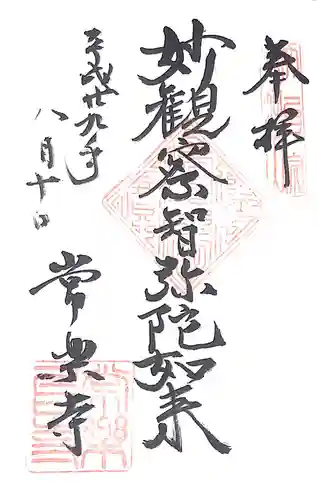 奉拝
妙観察智弥陀如来
平成廿九年
八月十日
常楽寺